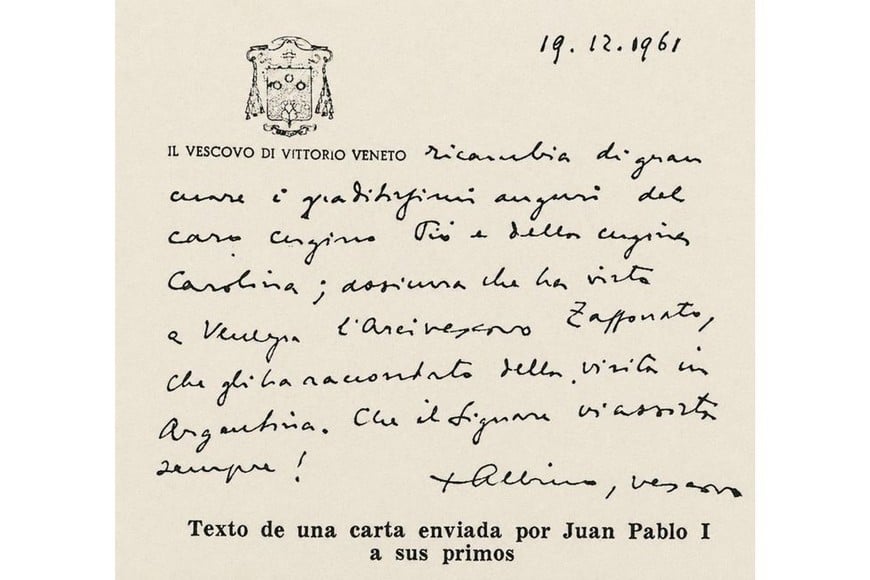 19.12.1961
IL VESCOVO DI VITTORIO VENETO ricambia di gran
cuore i graditissimi auguri del
caro cugino Pio e della cugina
Carolina; assicura che ha visto
a Venezia l'Arcivescovo Zaffonato,
che gli ha raccontato della visita in
Argentina. Che il Signore vi assista
sempre!
+ Albino, vescovo
Texto de una carta enviada por Juan Pablo I
a sus primos